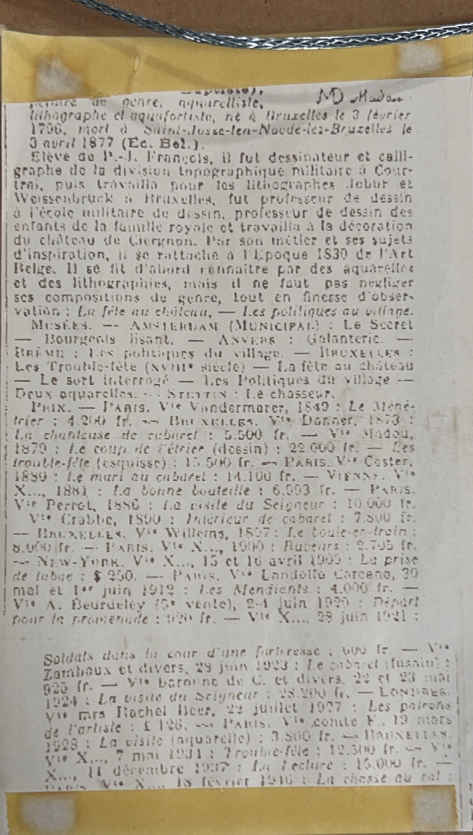 Baptiste),
peintre de genre, aquarelliste, JB Madou
lithographe et aquafortiste, né à Bruxelles le 3 février
1796, mort à Saint-Josse-ten-Noode-lez-Bruxelles le
3 avril 1877 (Ec. Bel.).
Elève de P.-J. François, il fut dessinateur et calli-
graphe de la division topographique militaire à Cour-
trai, puis travailla pour les lithographes Jobar et
Weissenbruck à Bruxelles, fut professeur de dessin
à l'école militaire de dessin, professeur de dessin des
enfants de la famille royale et travailla à la décoration
du château de Ciergnon. Par son métier et ses sujets
d'inspiration, il se rattache à l'Epoque 1830 de l'Art
Belge. Il se fit d'abord connaître par des aquarelles
et des lithographies, mais il ne faut pas négliger
ses compositions de genre, tout en finesse d'obser-
vation : La fête au château, — Les politiques au village.
MUSÉES. — AMSTERDAM (MUNICIPAL) : Le Secret
— Bourgeois lisant. — ANVERS : Galanterie. —
BRÊME : Les politiques du village. — BRUXELLES :
Les Trouble-fête (XVIIIe siècle) — La fête au château
— Le sort interrogé — Les Politiques du village —
Deux aquarelles. — STETTIN : Le chasseur.
PRIX. — PARIS. Vte Vandermarer, 1849 : Le Méné-
trier : 4.200 fr. — BRUXELLES. Vte Donner, 1873 :
La chanteuse de cabaret : 5.500 fr. — Vte Madou,
1879 : Le coup de l'étrier (dessin) : 22.000 fr. — Les
trouble-fête (esquisse) : 15.500 fr. — PARIS. Vte Coster,
1880 : Le mari au cabaret : 14.100 fr. — VIENNE. Vte
X..., 1881 : La bonne bouteille : 6.593 fr. — PARIS.
Vte Perrot, 1886 : La visite du Seigneur : 10.000 fr.
Vte Crabbe, 1890 : Intérieur de cabaret : 7.800 fr.
— BRUXELLES. Vte Willems, 1897 : Le boute-en-train :
8.000 fr. — PARIS. Vte X..., 1900 : Buveurs : 2.705 fr.
— NEW-YORK. Vte X..., 15 et 16 avril 1909 : La prise
de tabac : $ 250. — PARIS. Vte Landolfo Carcano, 30
mai et 1er juin 1912 : Les Mendiants : 4.000 fr. —
Vte A. Beurdeley (5e vente), 2-4 juin 1920 : Départ
pour la promenade : 920 fr. — Vte X..., 28 juin 1921 :
Soldats dans la cour d'une forteresse : 600 fr. — Vte
Zambaux et divers, 28 juin 1923 : Le cabaret (fusain) :
925 fr. — Vte baronne de C. et divers, 22 et 23 mai
1924 : La visite du Seigneur : 28.200 fr. — LONDRES.
Vte mrs Rachel Beer, 22 juillet 1927 : Les patrons
de l'artiste : £ 126. — PARIS. Vte comte F., 19 mars
1928 : La visite (aquarelle) : 3.800 fr. — BRUXELLES.
Vte X..., 7 mai 1931 : Trouble-fête : 12.500 fr. — Vte
X..., 11 décembre 1937 : La lecture : 15.000 fr. —
PARIS. Vte X..., 18 février 1946 : La chasse au rat :